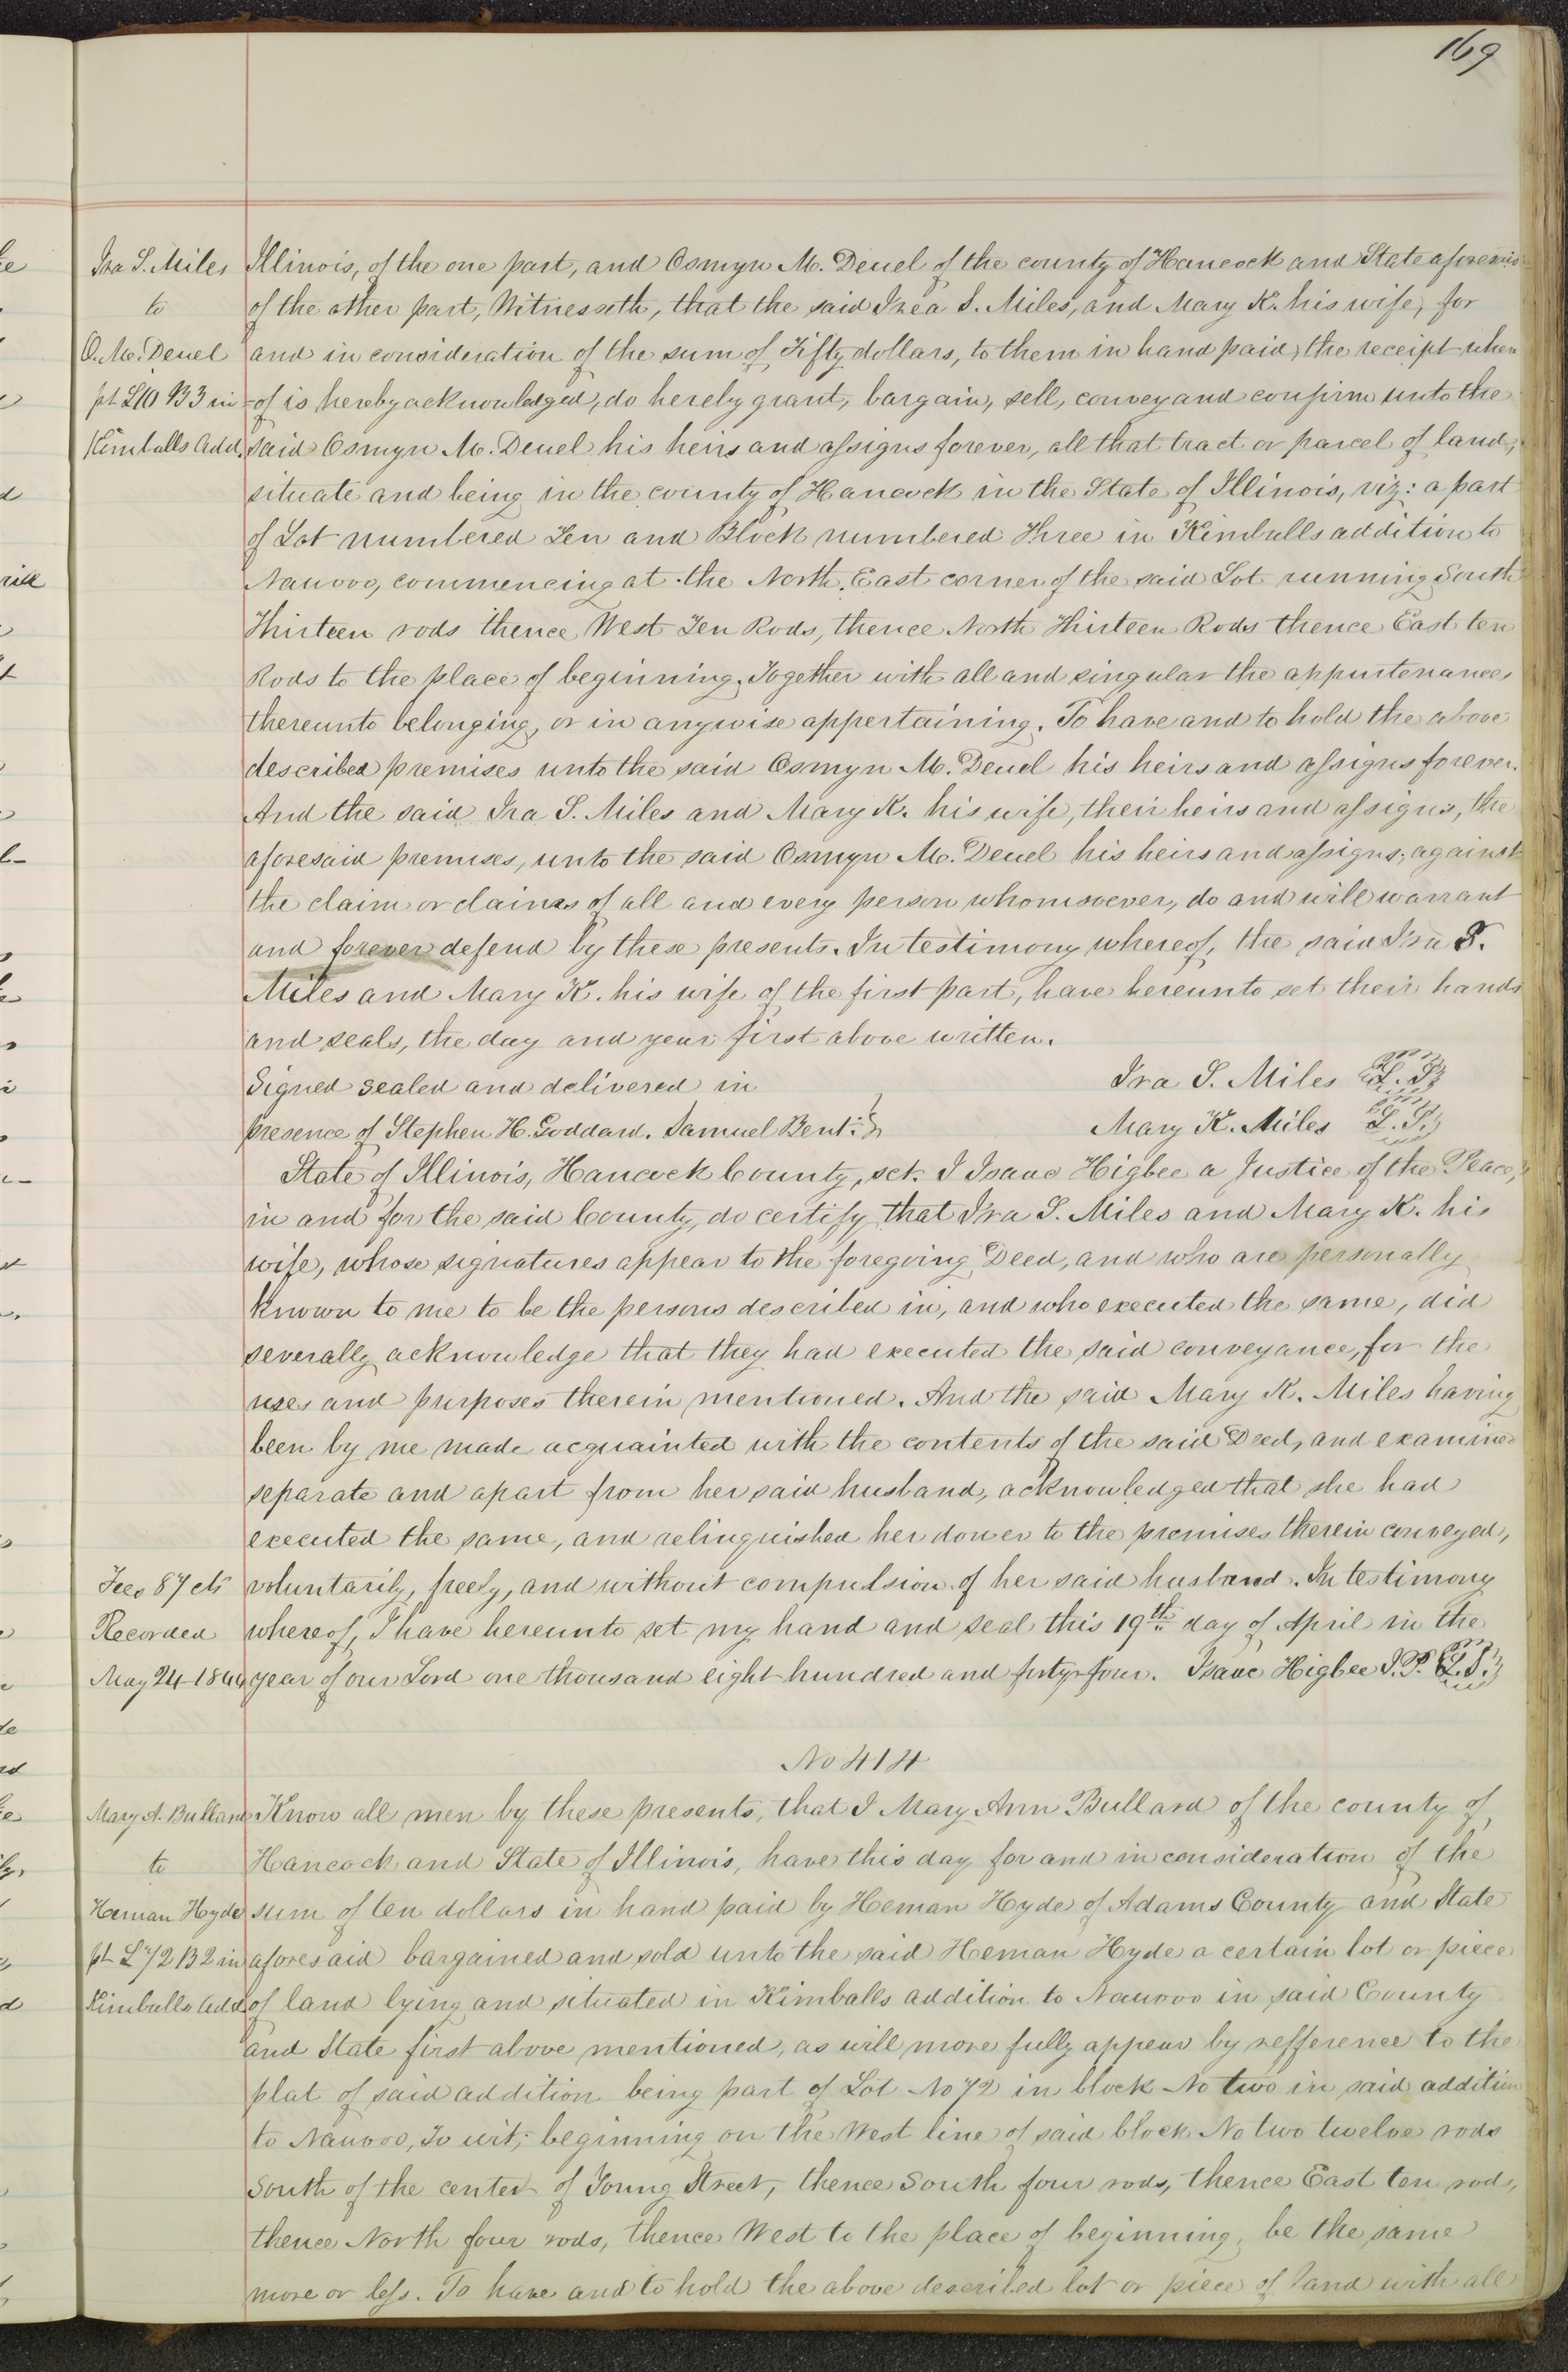 169
Ira S. Miles
to
O. M. Deuel
pt L10 B3 in
Kimballs Add.
Illinois, of the one part, and Osmyn M. Deuel of the county of Hancock and State aforesaid
of the other part, Witnesseth, that the said Irea S. Miles, and Mary K. his wife, for
and in consideration of the sum of Fifty dollars, to them in hand paid, the receipt when
-of is hereby acknowledged, do hereby grant, bargain, sell, convey and confirm unto the
said Osmyn M. Deuel his heirs and assigns forever, all that tract or parcel of land,
situate and being in the county of Hancock in the State of Illinois, viz: a part
of Lot numbered Ten and Block numbered Three in Kimballs addition to
Nauvoo, commencing at the North East corner of the said Lot running South
Thirteen rods thence West Ten Rods, thence North Thirteen Rods thence East ten
Rods to the place of beginning. Together with all and singular the appurtenances
thereunto belonging, or in anywise appertaining. To have and to hold the above
described premises unto the said Osmyn M. Deuel his heirs and assigns forever.
And the said Ira S. Miles and Mary K. his wife, their heirs and assigns, the
aforesaid premises, unto the said Osmyn M. Deuel his heirs and assigns, against
the claim or claims of all and every person whomsoever, do and will warrant
and forever defend by these presents. In testimony whereof, the said Ira S.
Miles and Mary K. his wife of the first part, have hereunto set their hands
and seals, the day and year first above written.
Signed sealed and delivered in
presence of Stephen H. Goddard. Samuel Bent.
Ira S. Miles L.S.
Mary K. Miles L.S.
State of Illinois, Hancock County, sct. I Isaac Higbee a Justice of the Peace,
in and for the said County, do certify that Ira S. Miles and Mary K. his
wife, whose signatures appear to the foregoing Deed, and who are personally
known to me to be the persons described in, and who executed the same, did
severally acknowledge that they had executed the said conveyance, for the
uses and purposes therein mentioned. And the said Mary K. Miles having
been by me made acquainted with the contents of the said Deed, and examined
separate and apart from her said husband, acknowledged that she had
executed the same, and relinquished her dower to the premises therein conveyed,
voluntarily, freely, and without compulsion of her said husband. In testimony
whereof, I have hereunto set my hand and seal this 19th day of April in the
year of our Lord one thousand eight hundred and forty-four. Isaac Higbee J.P. L.S.
Fees 87 cts
Recorded
May 24 1844
No 414
Mary A. Bullard
to
Heman Hyde
pt L 72 B2 in
Kimballs Add.
Know all men by these presents, that I Mary Ann Bullard of the county of
Hancock and State of Illinois, have this day for and in consideration of the
sum of ten dollars in hand paid by Heman Hyde of Adams County and State
aforesaid bargained and sold unto the said Heman Hyde a certain lot or piece
of land lying and situated in Kimballs addition to Nauvoo in said County
and State first above mentioned, as will more fully appear by refference to the
plat of said addition being part of Lot No 72 in block No two in said addition
to Nauvoo, To wit; beginning on the West line of said block No two twelve rods
South of the center of Young Street, thence South four rods, thence East ten rods,
thence North four rods, thence West to the place of beginning, be the same
more or less. To have and to hold the above described lot or piece of land with all